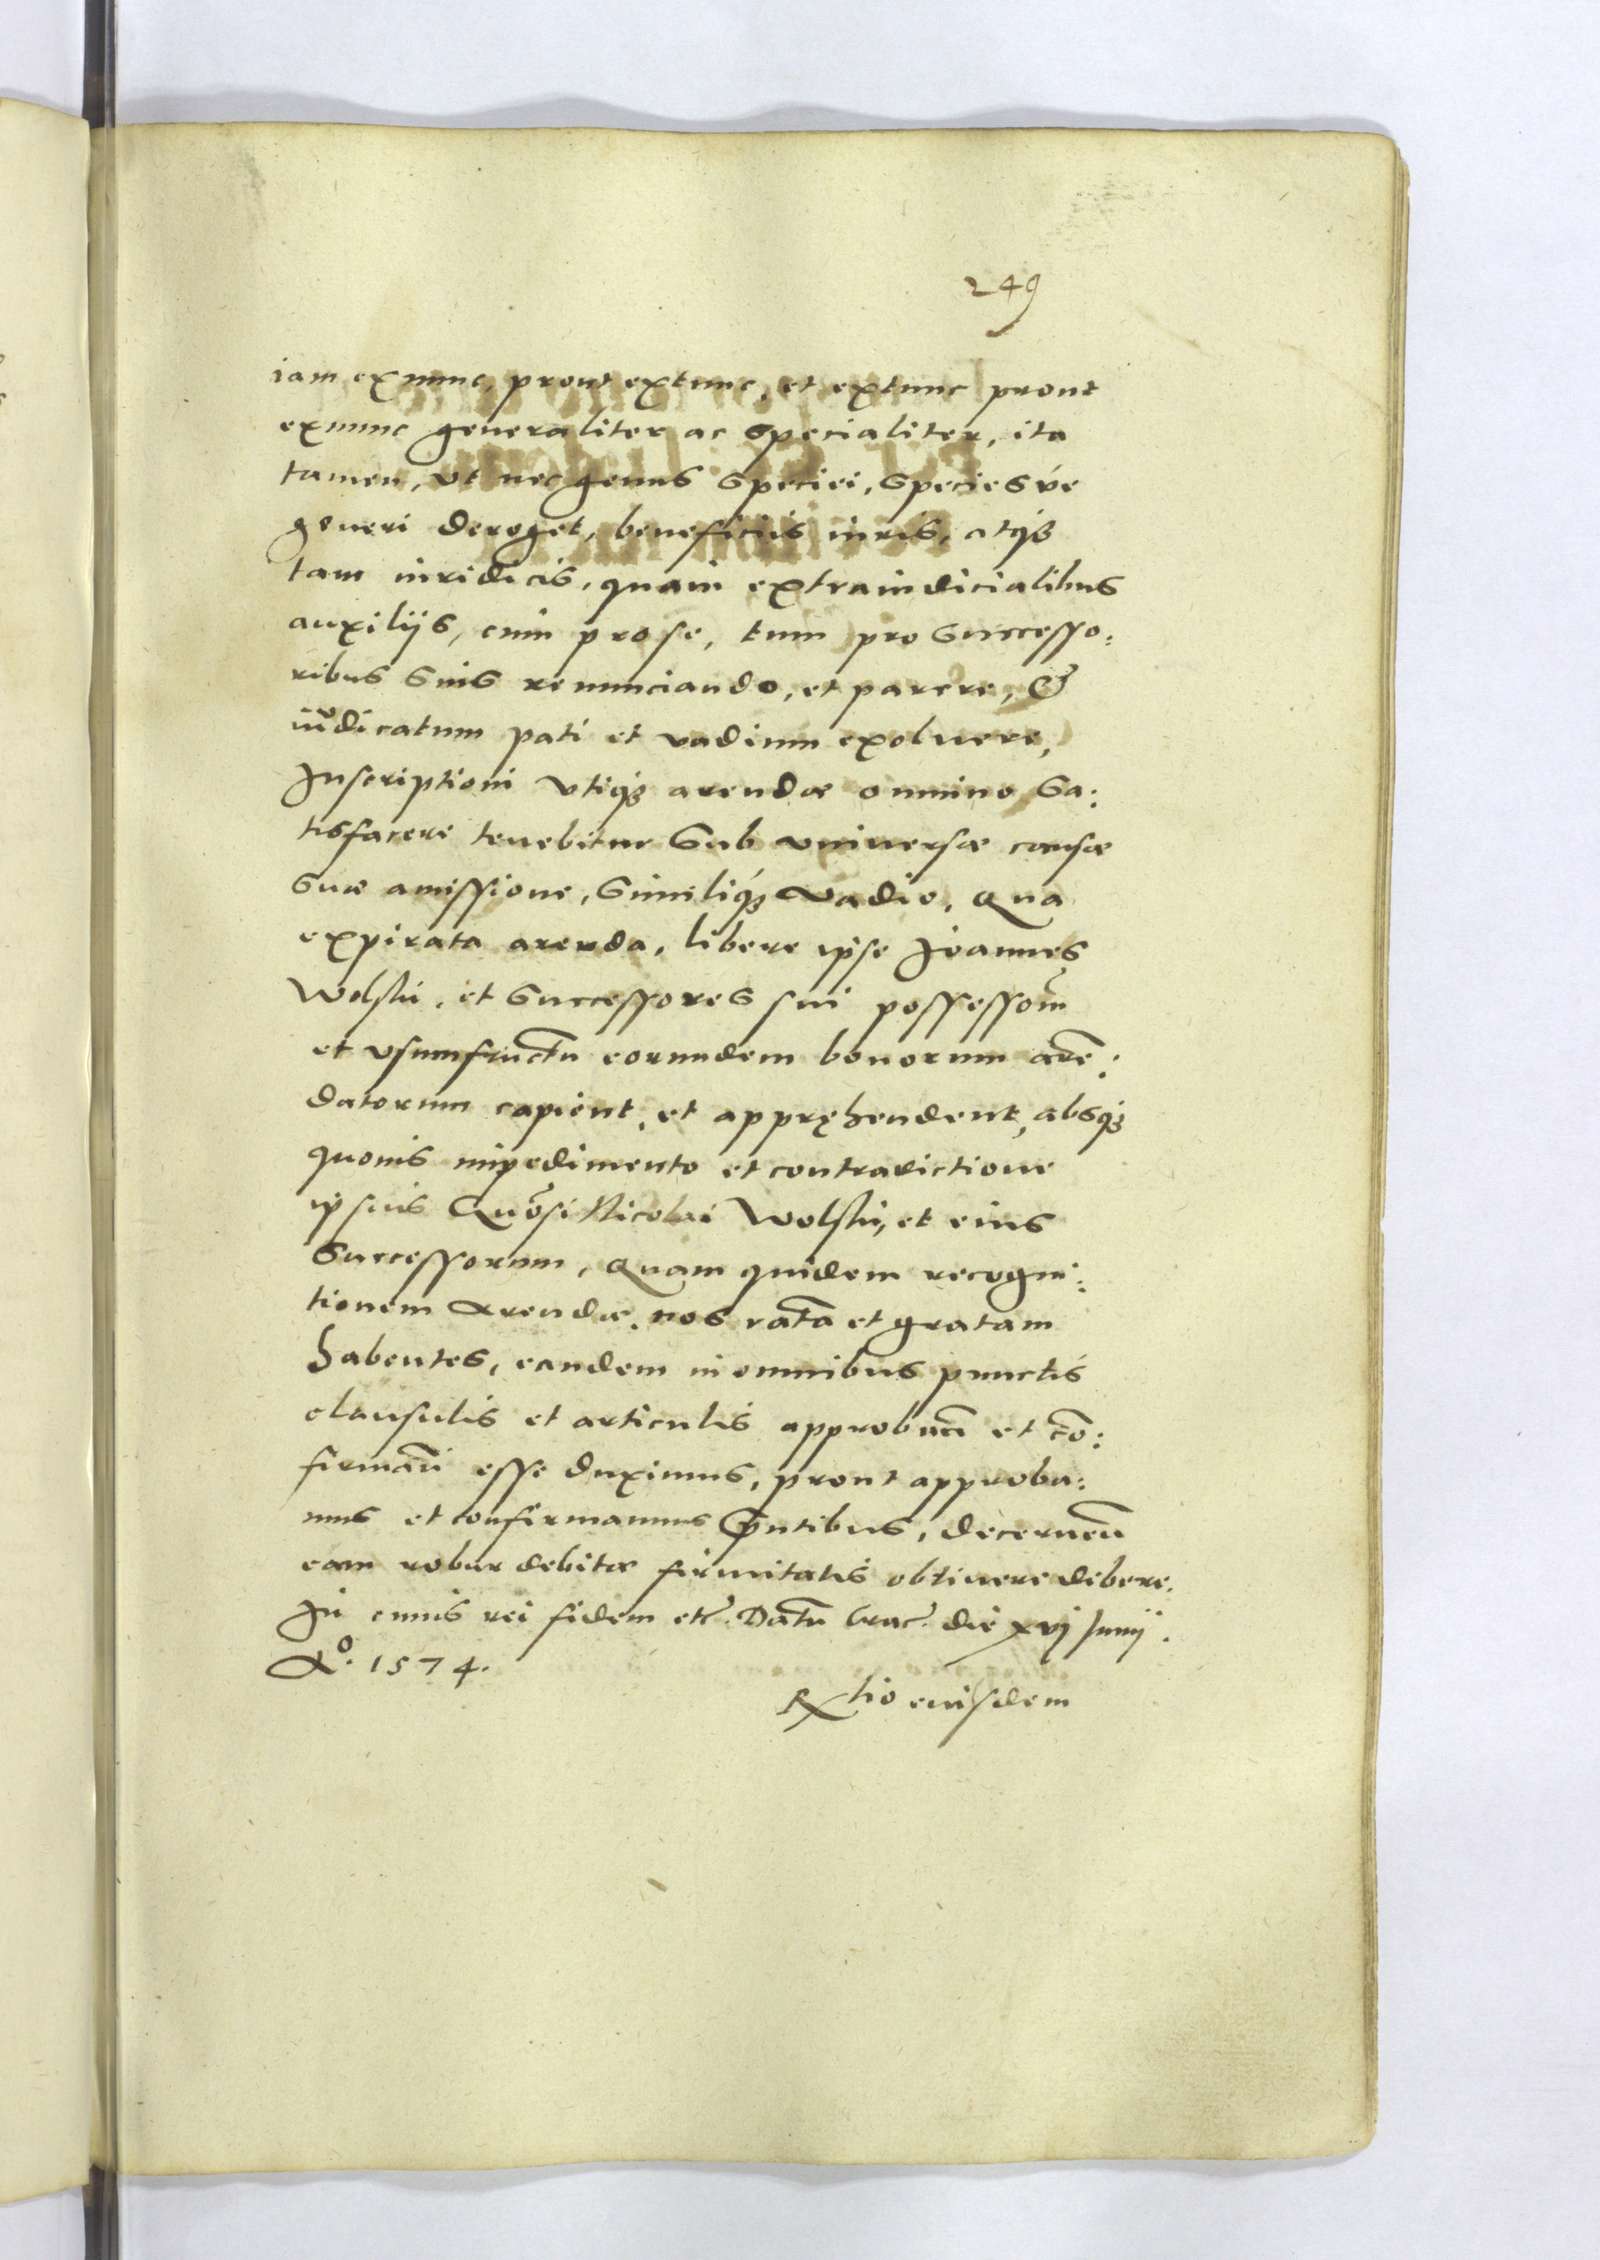 249
iam exnunc, prout extunc, et extunc prout
exnunc generaliter ac specialiter, ita
tamen, vt nec genus speciei, speciesve
generi deroget, beneficiis iuris, atq́ꝫ
tam iuridicis, quam extraiudicialibus
auxiliis, cum pro se, tum pro successo:
ribus suis renunciando, et parere, &
iudicatum pati et vadium exoluere,
Inscriptioni vtiqꝫ arendæ omnino sa:
tisfacere tenebitur sub vniversæ causæ
suæ amissione, similiqꝫ vadio, Qua
expirata arenda, libere ipse Joannes
Wolski, et successores sui possessiom̃
et vsumfructũ eorundem bonorum arẽ:
datorum capient, et appręhendent, absqꝫ
quouis impedimento et contradictione
ipsius Gñosi Nicolai Wolski, et eius
Successorum, Quam quidem recogni:
tionem Arendæ, nos ratã et gratam
habentes, eandem in omnibus punctis
clausulis et articulis approbañ et cõ:
firmañ esse duximus, prout approba:
mus et confirmamus p̃ntibus, decerneñ
eam robur debitæ firmitatis obtinere debere.
In cuius rei fidem etc̃. Datũ Crac̃. die xvj Junij.
Aº. 1574.
Rltio eiusdem